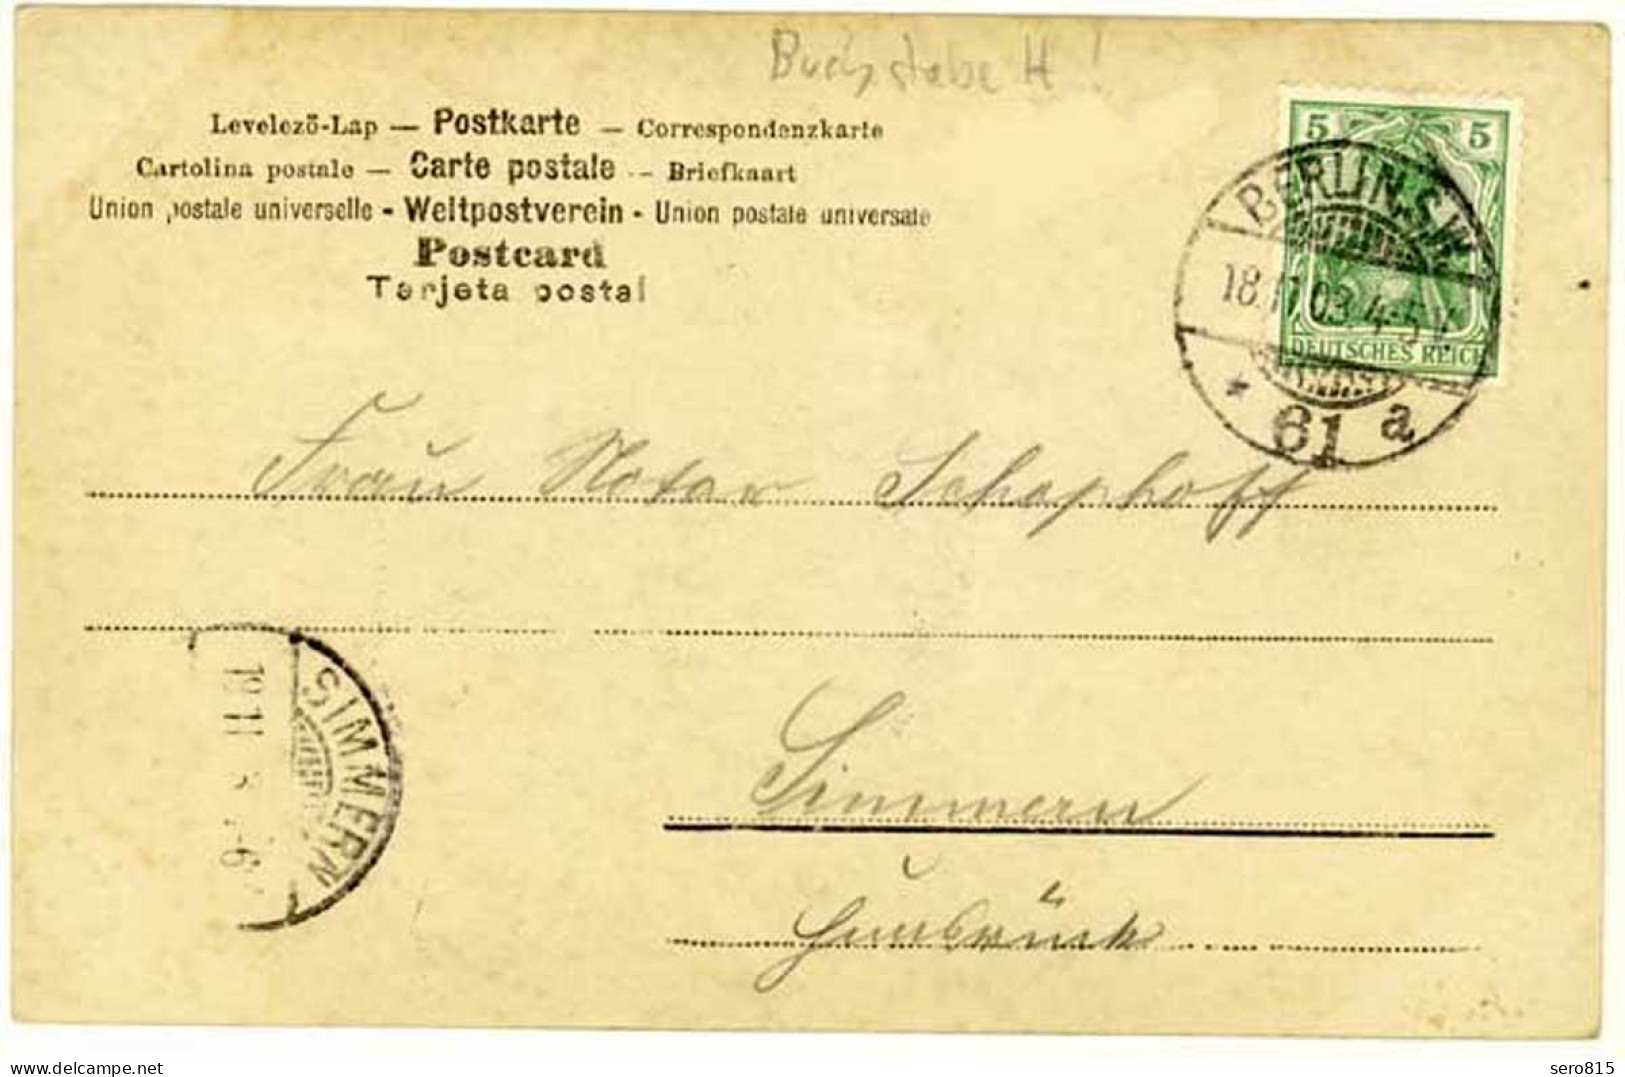 Buchstabe H!
Levelező-Lap — Postkarte — Correspondenzkarte
Cartolina postale — Carte postale -- Briefkaart
Union postale universelle - Weltpostverein - Union postale universale
Postcard
Tarjeta postal
5 5
DEUTSCHES REICH
BERLIN. S.W.
18.11.03. 4-5 V.
* 61 a
Frau Notar Schaphoff
SIMMERN
19.11
Simmern
Hunsrück
www.delcampe.net
sero815